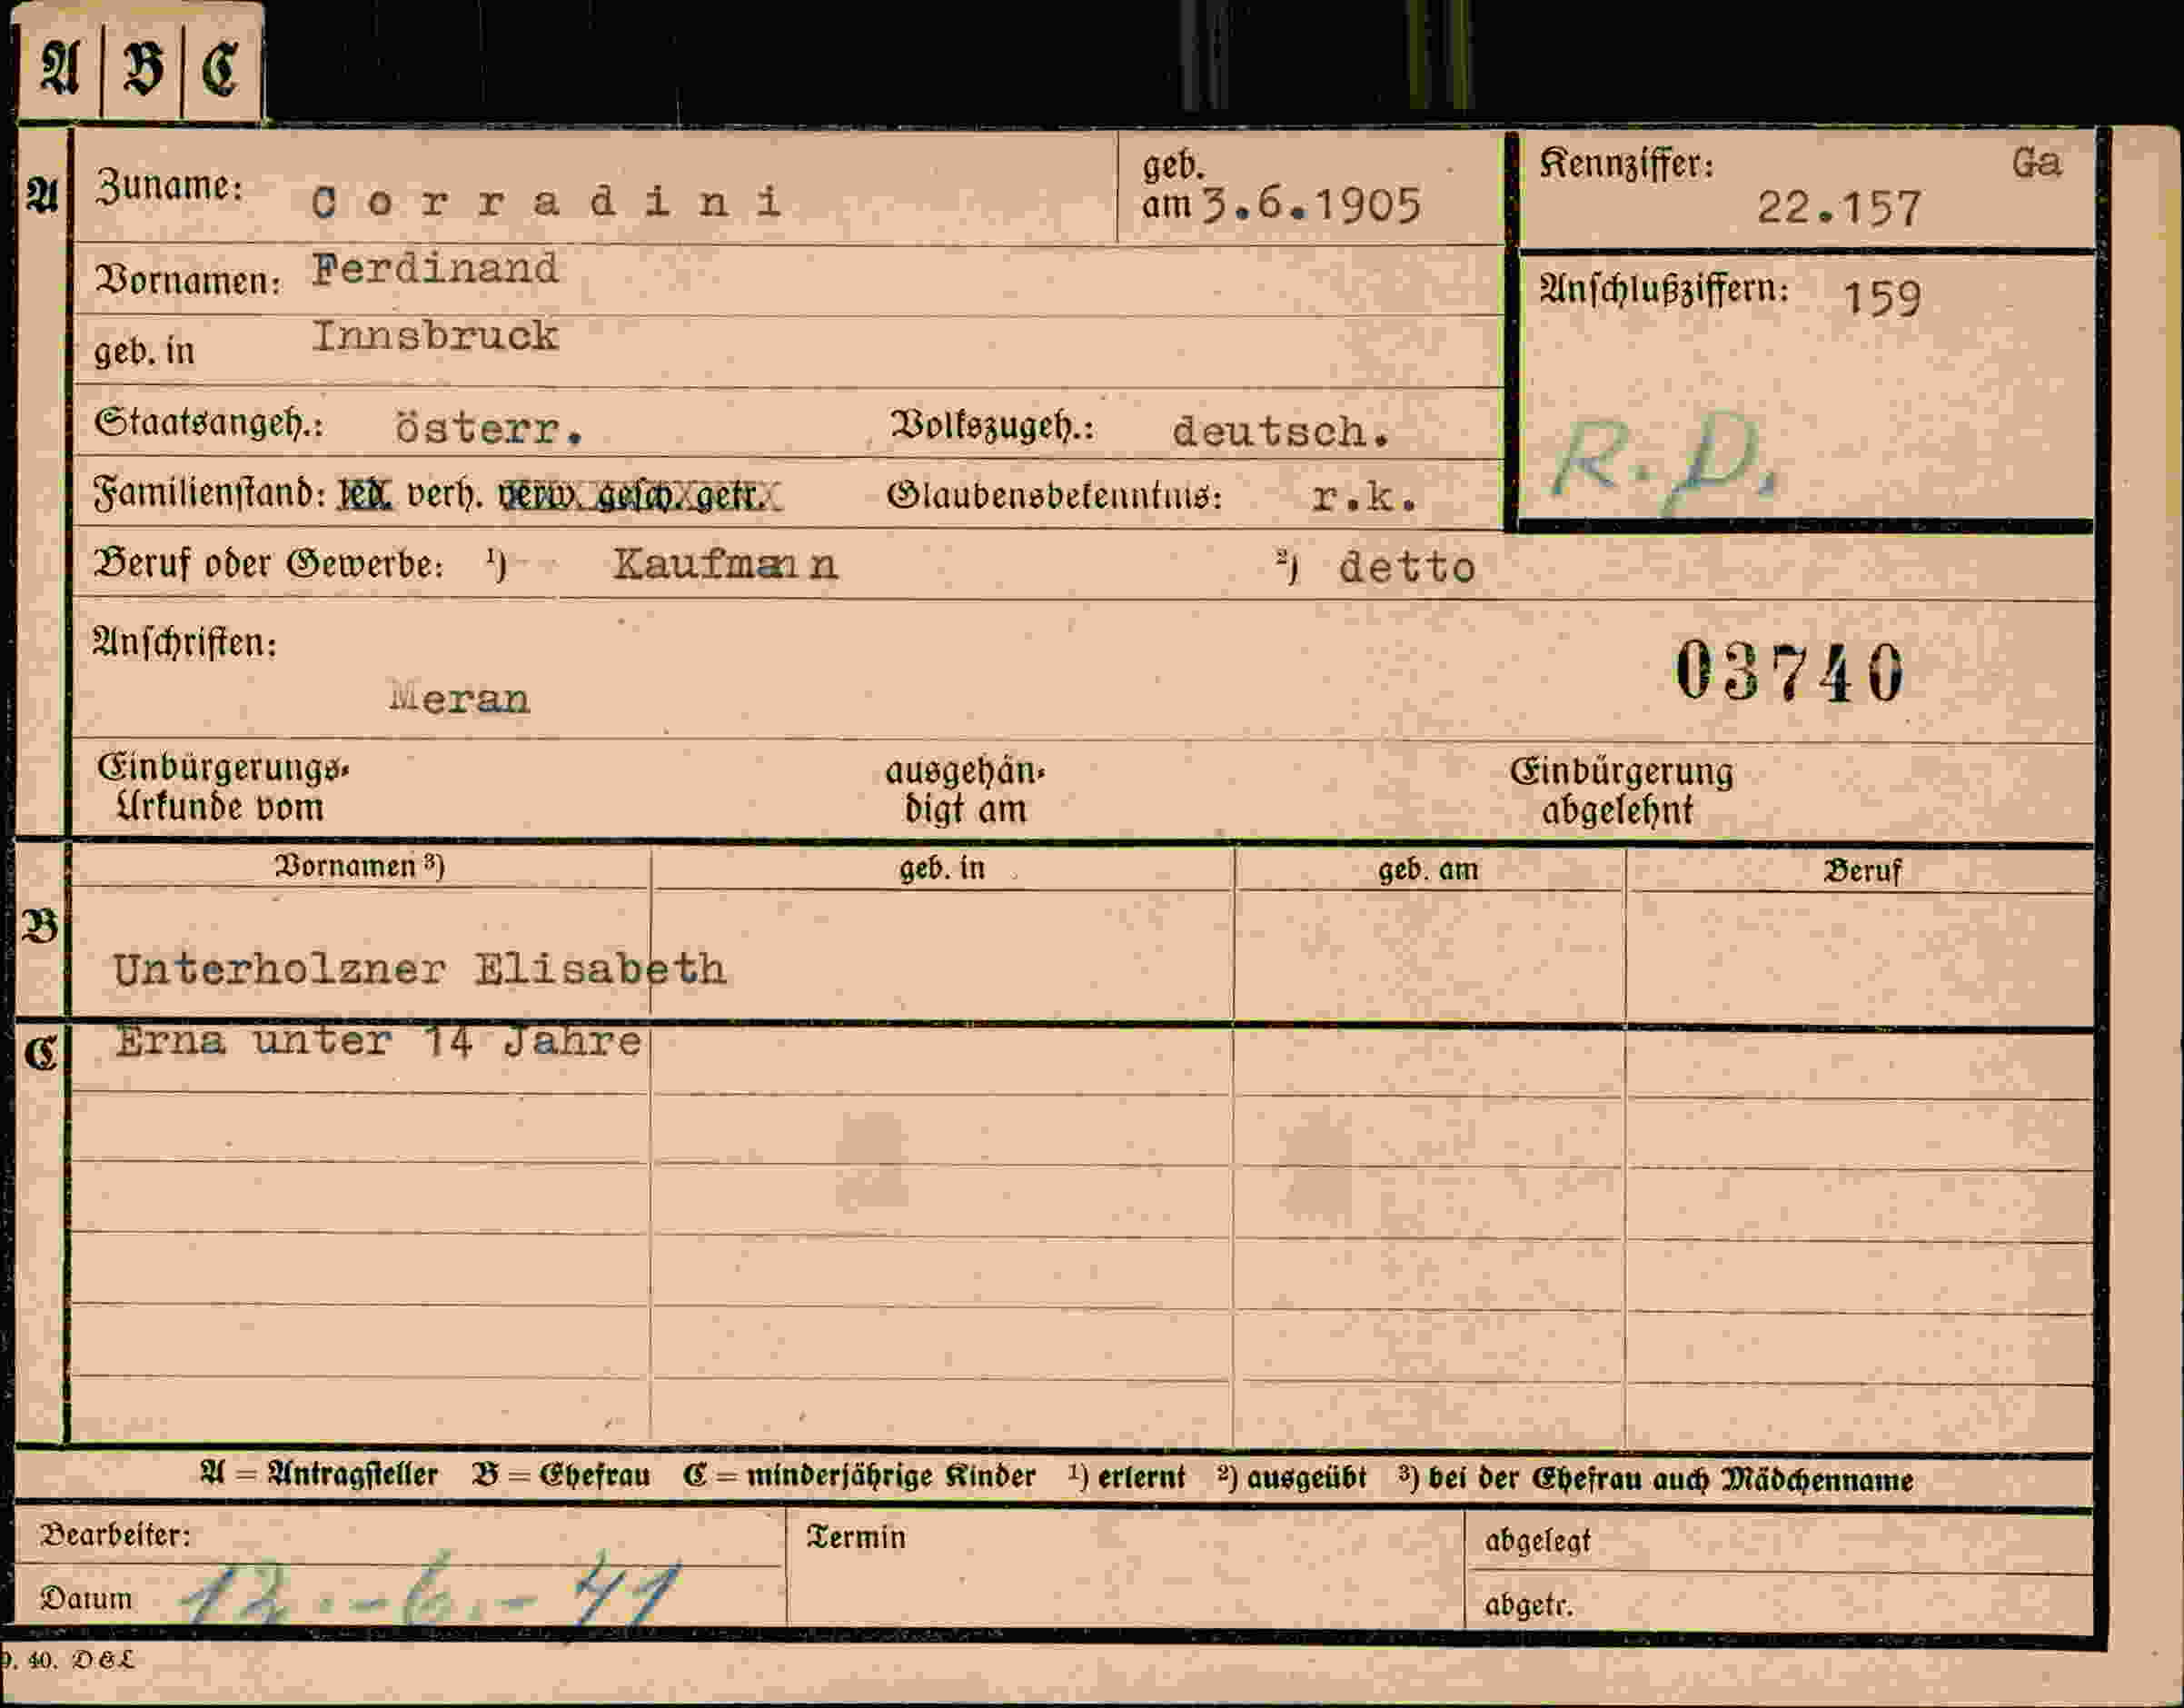 A B C
A Zuname: Corradini geb. am 3.6.1905 Kennziffer: Ga 22.157
Vornamen: Ferdinand
Anschlußziffern: 159
geb. in Innsbruck
Staatsangeh.: österr. Volkszugeh.: deutsch.
R. D.
Familienstand: led. verh. verw. gesch. getr. Glaubensbekenntnis: r.k.
Beruf oder Gewerbe: ¹) Kaufmann ²) detto
Anschriften:
03740
Meran
Einbürgerungs- ausgehän- Einbürgerung
Urkunde vom digt am abgelehnt
Vornamen ³) geb. in geb. am Beruf
B
Unterholzner Elisabeth
C Erna unter 14 Jahre
A = Antragsteller B = Ehefrau C = minderjährige Kinder ¹) erlernt ²) ausgeübt ³) bei der Ehefrau auch Mädchenname
Bearbeiter: Termin abgelegt
Datum 12.-6.-41 abgetr.
9. 40. D&L